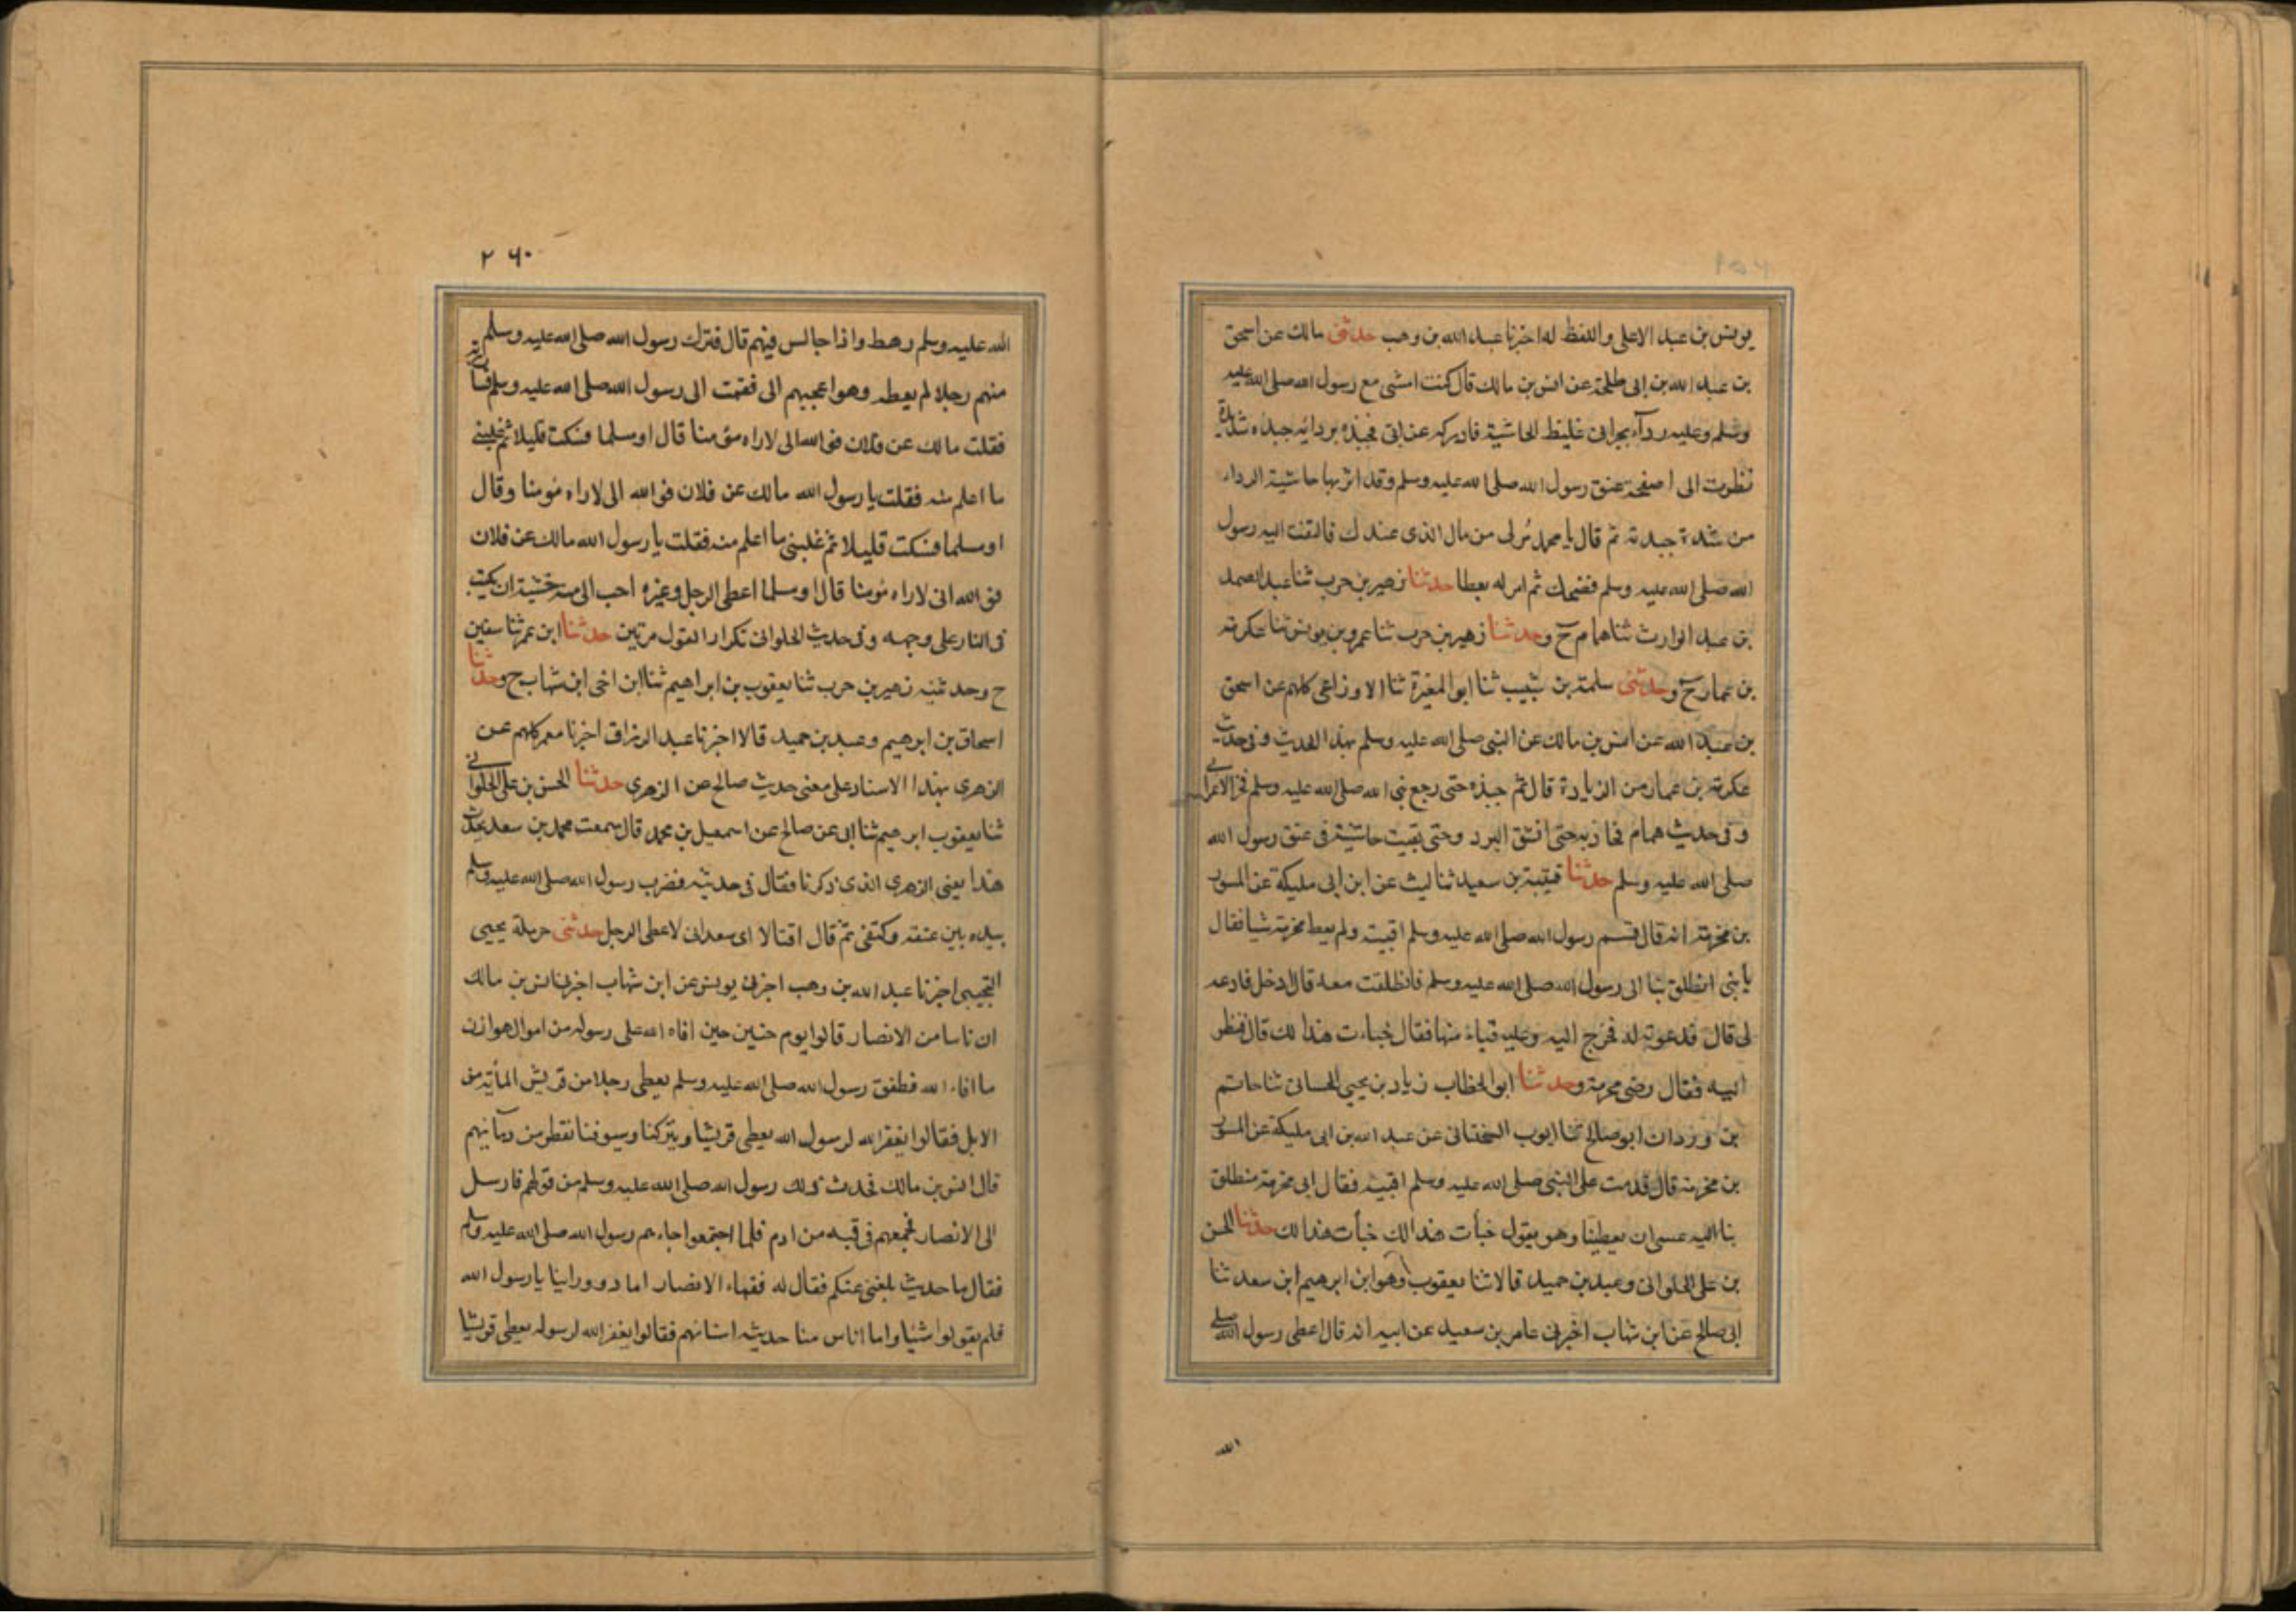 يونس بن عبد الاعلى واللفظ له اخبرنا عبد الله بن وهب حدثنى مالك عن اسحق
بن عبد الله بن ابى طلحة عن انس بن مالك قال كنت امشى مع رسول الله صلى الله عليه
وسلم وعليه ردآء نجرانى غليظ الحاشية فادركه عرابى فجبذه بردائه جبذه شديدة
نظرت الى صفحة عنق رسول الله صلى الله عليه وسلم وقد اثر بها حاشية الرداء
من شدة جبذته ثم قال يا محمد مُر لى من مال الذى عندك فالتفت اليه رسول
الله صلى الله عليه وسلم فضحك ثم امر له بعطا حدثنا زهير بن حرب ثنا عبد الصمد
بن عبد الوارث ثنا همام ح وحدثنا زهير بن حرب ثنا عمرو بن يونس ثنا عكرمة
بن عمار ح وحدثنى سلمة بن شبيب ثنا ابو المغيرة ثنا الاوزاعى كلهم عن اسحق
بن عبد الله عن انس بن مالك عن النبى صلى الله عليه وسلم بهذا الحديث وفى حديث
عكرمة بن عمار من الزيادة قال ثم جبذه حتى رجع نبى الله صلى الله عليه وسلم نحر الاعرابى
وفى حديث همام فجاذبه حتى انشق البرد وحتى بقيت حاشية فى عنق رسول الله
صلى الله عليه وسلم حدثنا قتيبة بن سعيد ثنا ليث عن ابن ابى مليكة عن المسور
بن مخرمة انه قال قسم رسول الله صلى الله عليه وسلم اقبية ولم يعط مخرمة شيا فقال
يا بنى انطلق بنا الى رسول الله صلى الله عليه وسلم فانطلقت معه قال ادخل فادعه
لى قال فدعوته له فخرج اليه وعليه قباء منها فقال خباءت هذا لك قال فنظر
اليه فقال رضى مخرمة وحدثنا ابو الخطاب زياد بن يحيى الحسانى ثنا حاتم
بن وردان ابو صالح ثنا ايوب السختيانى عن عبد الله بن ابى مليكة عن المسور
بن مخرمة قال قدمت على النبى صلى الله عليه وسلم اقبية فقال ابى مخرمة منطلق
بنا اليه عسى ان يعطينا وهو يقول خبأت هذا لك خبأت هذا لك حدثنا الحسن
بن على الحلوانى وعبد بن حميد قالا ثنا يعقوب وهو ابن ابرهيم ابن سعد ثنا
ابى صالح عن ابن شهاب اخبرنى عامر بن سعيد عن ابيه انه قال اعطى رسول الله صلى
الله
٢٦٠
الله عليه وسلم رهط وانا جالس فيهم قال فترك رسول الله صلى الله عليه وسلم
منهم رجلا لم يعطه وهو اعجبهم الى فقمت الى رسول الله صلى الله عليه وسلم فساررته
فقلت مالك عن فلان فوالله انى لاراه مؤمنا قال او مسلما فسكت قليلا ثم غلبنى
ما اعلم منه فقلت يا رسول الله مالك عن فلان فوالله انى لاراه مؤمنا وقال
او مسلما فسكت قليلا ثم غلبنى ما اعلم منه فقلت يا رسول الله مالك عن فلان
فوالله انى لاراه مؤمنا قال او مسلما اعطى الرجل وغيره احب الى منه خشية ان يكب
فى النار على وجهه وفى حديث الحلوانى تكرار القول مرتين حدثنا ابن عمر ثنا سفين
ح وحدثنيه زهير بن حرب ثنا يعقوب بن ابراهيم ثنا ابن اخى ابن شهاب ح وحدثنا
اسحاق بن ابرهيم وعبد بن حميد قالا اخبرنا عبد الرزاق اخبرنا معمر كلهم عن
الزهرى بهذا الاسناد على معنى حديث صالح عن الزهرى حدثنا الحسن بن على الحلوانى
ثنا يعقوب ابرهيم ثنا ابى عن صالح عن اسمعيل بن محمد قال سمعت محمد بن سعد يحدث
هذا يعنى الزهرى الذى ذكرنا فقال فى حديثه فضرب رسول الله صلى الله عليه وسلم
بيده بين عنقه وكتفى ثم قال اقتالا اى سعد انى لاعطى الرجل حدثنى حرملة يحيى
التجيبى اخبرنا عبد الله بن وهب اخبرنى يونس عن ابن شهاب اخبرنى انس بن مالك
ان ناسا من الانصار قالوا يوم حنين حين افاه الله على رسوله من اموال هوازن
ما افاء الله فطفق رسول الله صلى الله عليه وسلم يعطى رجلا من قريش المأئة من
الابل فقالوا يغفر الله لرسول الله يعطى قريشا ويتركنا وسيوفنا تقطر من دمآئهم
قال انس بن مالك فحدث ذلك رسول الله صلى الله عليه وسلم من قولهم فارسل
الى الانصار فجمعهم فى قبه من ادم فلما اجتمعوا جاءهم رسول الله صلى الله عليه وسلم
فقال ما حديث بلغنى عنكم فقال له فقهاء الانصار اما ذوو راينا يا رسول الله
فلم يقولوا شئيا واما اناس منا حديثه اسنانهم فقالوا يغفر الله لرسوله يعطى قريشا